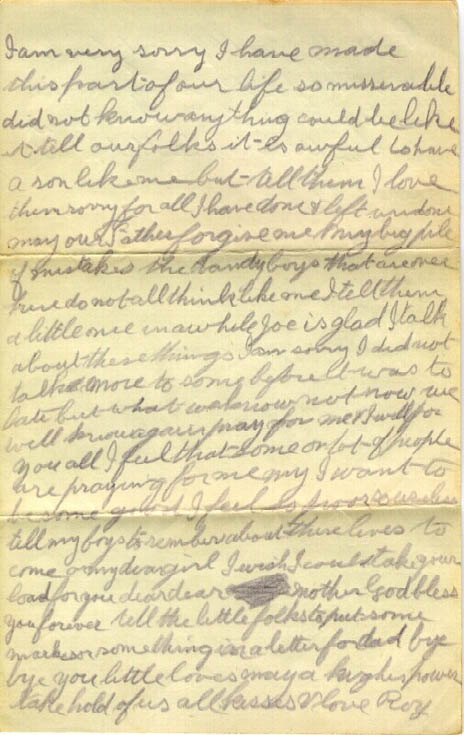 I am very sorry I have made
this part of our life so misserable
did not know anything could be like
it tell our folks it is awful to have
a son like me but tell them I love
them sorry for all I have done & left undone
may our Father forgive me my big pile
of mistakes the dandy boys that are over
here do not all think like me I tell them
a little once in a while Joe is glad I talk
about these things I am sorry I did not
talk more to some before it was to
late but what we know not now we
will know again pray for me & I will for
you all I feel that some or lot of people
are praying for me my I want to
be some good I feel so poor
tell my boys to rember about there lives to
come o my dear girl I wish I could take your
load for you dear dear mother God bless
you forever tell the little folks to put some
marks or something in a letter for dad bye
bye you little loves may a higher power
take hold of us all kisses & love Roy